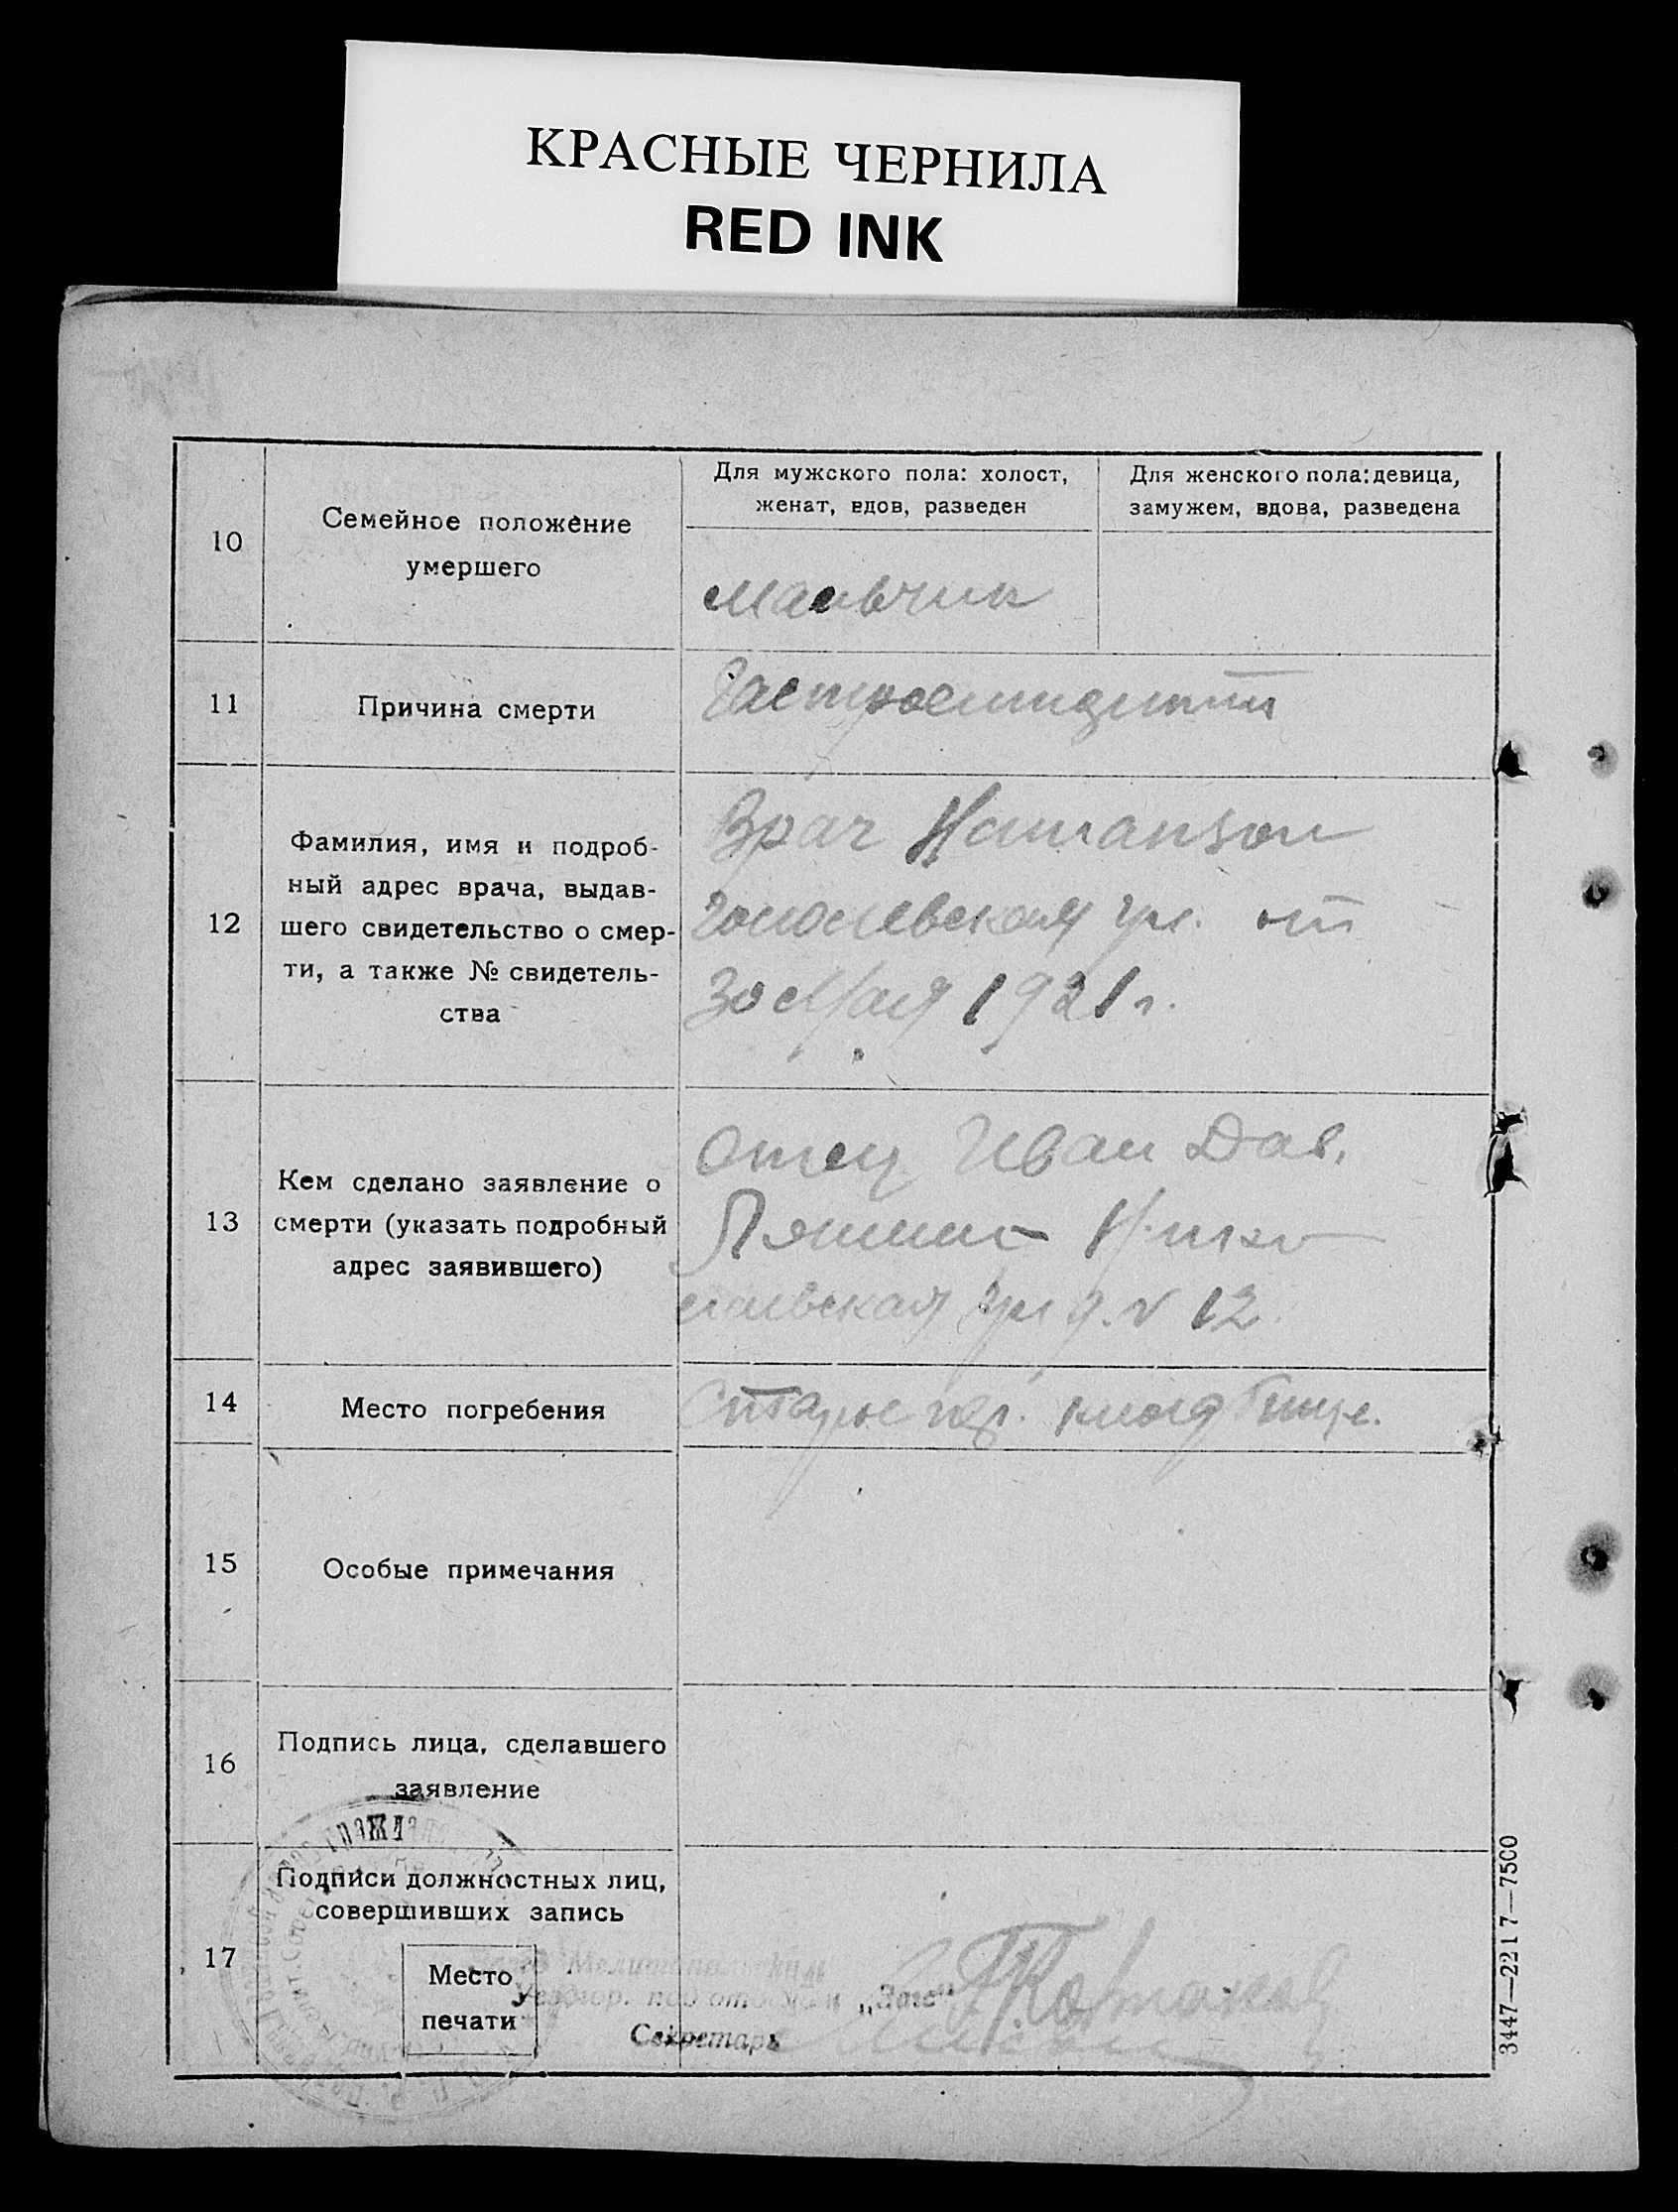 КРАСНЫЕ ЧЕРНИЛА
RED INK
10
Семейное положение
умершего
Для мужского пола: холост,
женат, вдов, разведен
Для женского пола: девица,
замужем, вдова, разведена
мальчик
11
Причина смерти
12
Фамилия, имя и подроб-
ный адрес врача, выдав-
шего свидетельство о смер-
ти, а также № свидетель-
ства
Врач
ул. от
30 Мая 1921 г.
13
Кем сделано заявление о
смерти (указать подробный
адрес заявившего)
Отец Иван Дав.
Нико
лаевская ул д. № 12.
14
Место погребения
Старое кладбище.
15
Особые примечания
16
Подпись лица, сделавшего
заявление
17
Подписи должностных лиц,
совершивших запись
Место
печати
„Загс"
Секретарь
3447—2217—7500